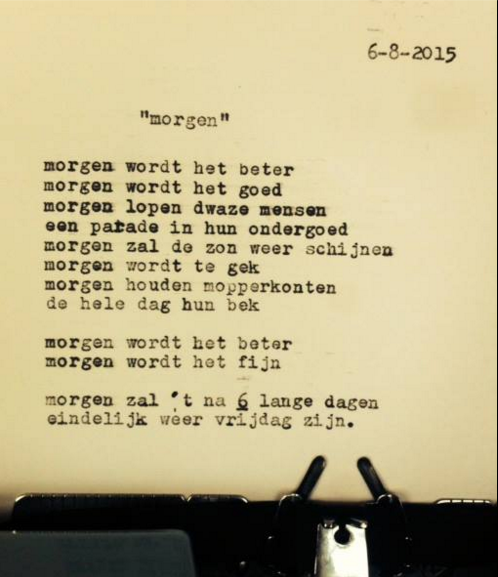 6-8-2015
"morgen"
morgen wordt het beter
morgen wordt het goed
morgen lopen dwaze mensen
een parade in hun ondergoed
morgen zal de zon weer schijnen
morgen wordt te gek
morgen houden mopperkonten
de hele dag hun bek
morgen wordt het beter
morgen wordt het fijn
morgen zal 't na 6 lange dagen
eindelijk weer vrijdag zijn.